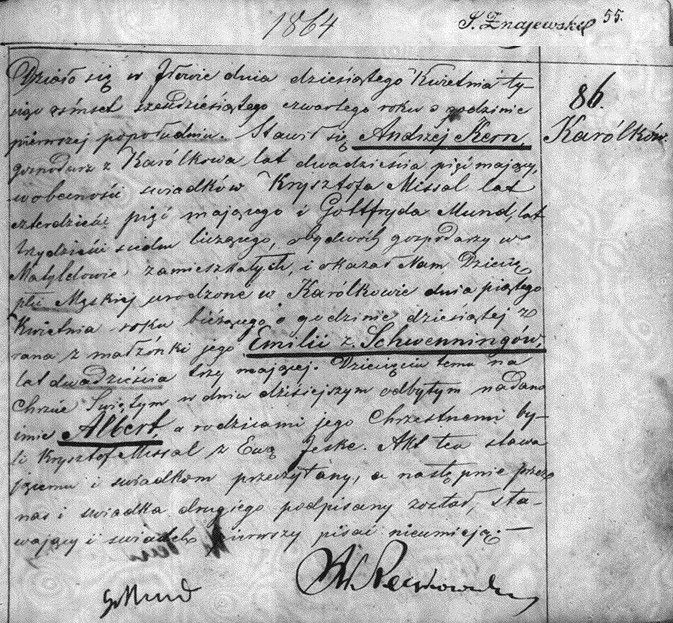 1864
S. Znajewski 55.
86.
Karólków.
Działo się w Iłowie dnia dziesiątego Kwietnia ty-
siąc ośmset sześdziesiątego czwartego roku o godzinie
pierwszej popołudniu. Stawił się Andrzej Kern
gospodarz z Karólkowa lat dwadzieścia pięć mający,
w obecności świadków Krysztofa Missal lat
czterdzieści pięć mającego i Gottfryda Mund, lat
trzydzieści siedm liczącego, obydwóch gospodarzy w
Matyldowie zamieszkałych, i okazał Nam Dziecię
płci Męskiej urodzone w Karólkowie dnia piątego
Kwietnia roku bieżącego o godzinie dziesiątej z
rana z małżonki jego Emilii z Schwenningów,
lat dwadzieścia trzy mającej. Dziecięciu temu na
Chrzcie Świętym w dniu dzisiejszym odbytym nadano
imie Albert a rodzicami jego Chrzestnemi by-
li Krysztof Missal z Ewą Jeske. Akt ten stawa
jącemu i świadkom przeczytany, a następnie przez
nas i świadka drugiego podpisany został, sta-
wający i świadek pierwszy pisać nieumieją. —
G. Mund